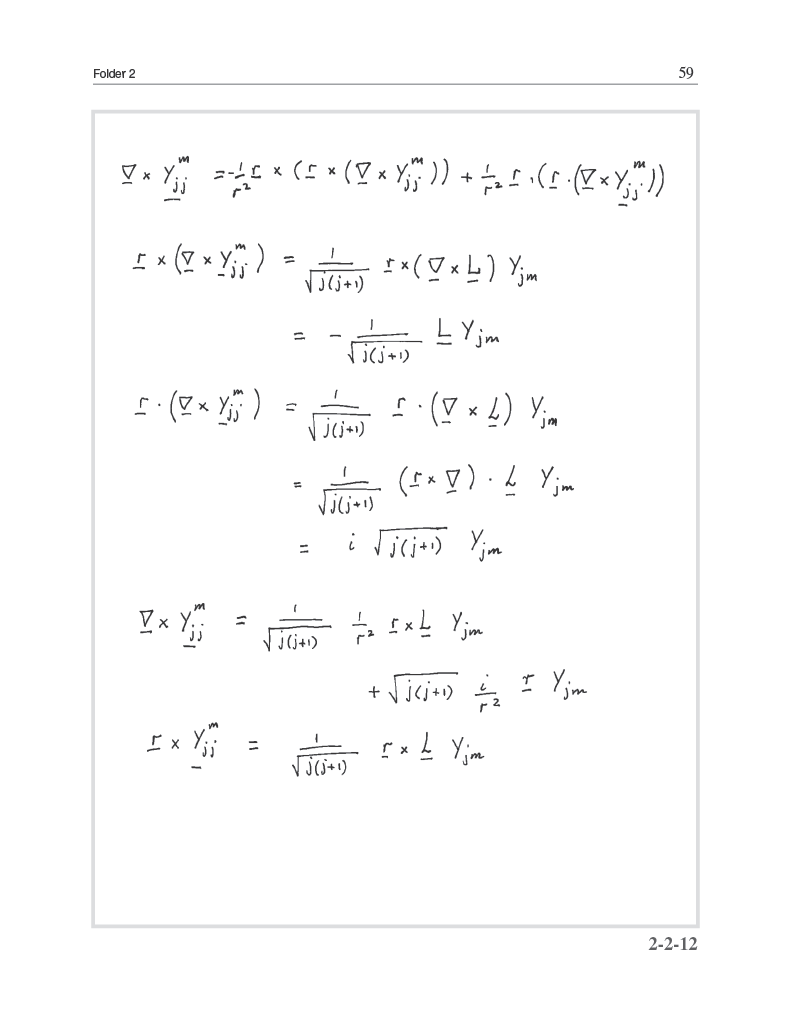 Folder 2 59
∇ × Y_{jj}^m = -\frac{1}{r^2} r × (r × (∇ × Y_{jj}^m)) + \frac{1}{r^2} r · (r · (∇ × Y_{jj}^m))
r × (∇ × Y_{jj}^m) = \frac{1}{\sqrt{j(j+1)}} r × (∇ × L) Y_{jm}
= - \frac{1}{\sqrt{j(j+1)}} L Y_{jm}
r · (∇ × Y_{jj}^m) = \frac{1}{\sqrt{j(j+1)}} r · (∇ × L) Y_{jm}
= \frac{1}{\sqrt{j(j+1)}} (r × ∇) · L Y_{jm}
= i \sqrt{j(j+1)} Y_{jm}
∇ × Y_{jj}^m = \frac{1}{\sqrt{j(j+1)}} \frac{1}{r^2} r × L Y_{jm}
+ \sqrt{j(j+1)} \frac{i}{r^2} r Y_{jm}
r × Y_{jj}^m = \frac{1}{\sqrt{j(j+1)}} r × L Y_{jm}
2-2-12